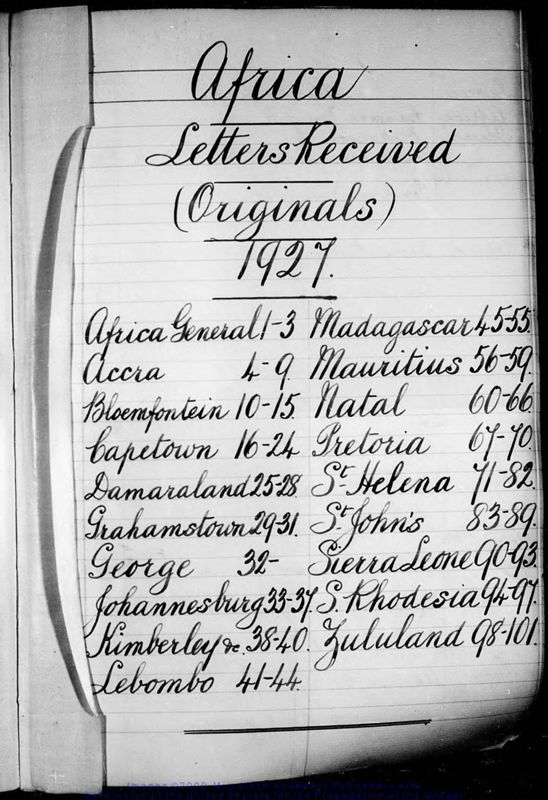 Africa
Letters Received
(Originals)
1927.
Africa General 1-3
Accra 4-9
Bloemfontein 10-15
Capetown 16-24
Damaraland 25-28
Grahamstown 29-31.
George 32-
Johannesburg 33-37.
Kimberley &c. 38-40.
Lebombo 41-44
Madagascar 45-55.
Mauritius 56-59.
Natal 60-66
Pretoria 67-70.
St. Helena 71-82.
St. John's 83-89.
Sierra Leone 90-93.
S. Rhodesia 94-97.
Zululand 98-101.